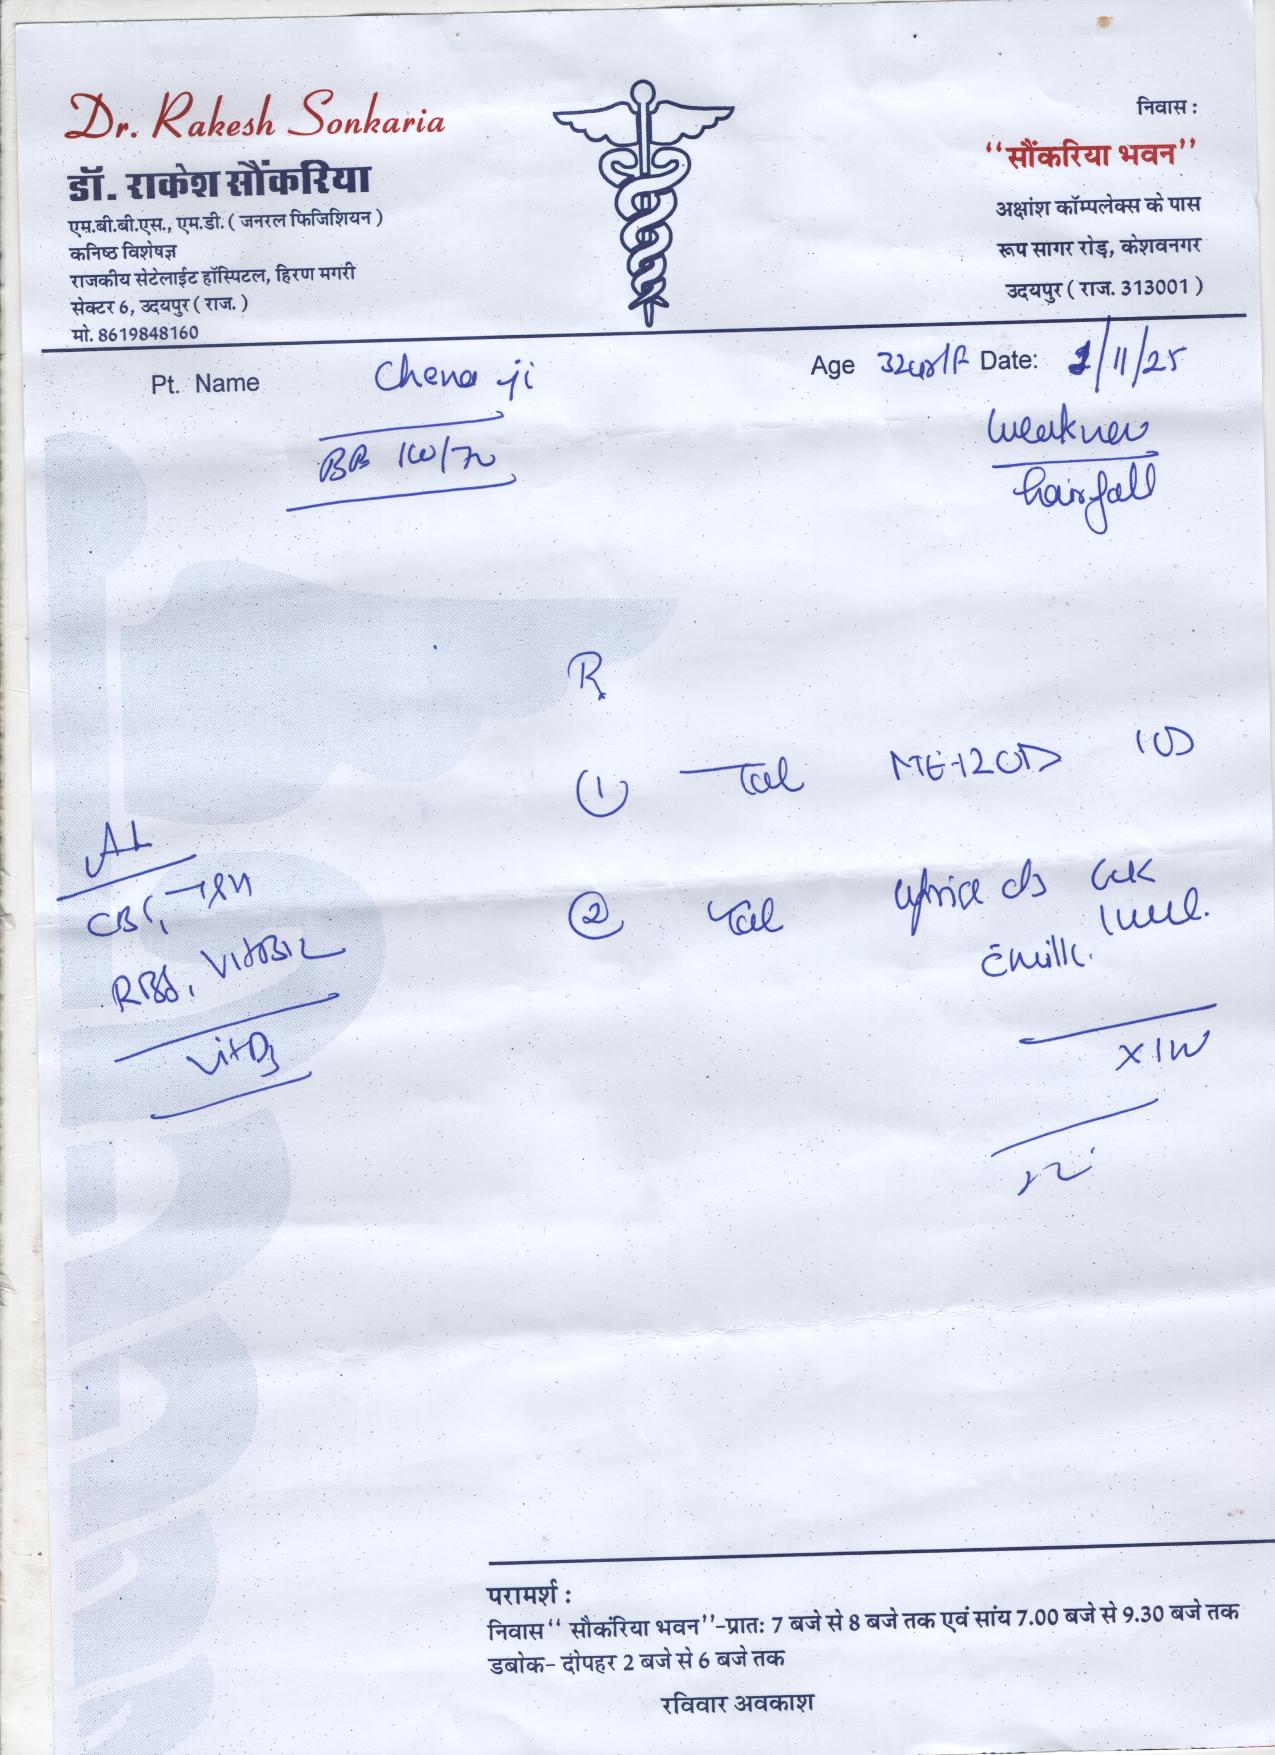 Dr. Rakesh Sonkaria
डॉ. राकेश सौंकरिया
एम.बी.बी.एस., एम.डी. ( जनरल फिजिशियन )
कनिष्ठ विशेषज्ञ
राजकीय सेटेलाईट हॉस्पिटल, हिरण मगरी
सेक्टर 6, उदयपुर ( राज. )
मो. 8619848160
निवास :
“सौंकरिया भवन”
अक्षांश कॉम्पलेक्स के पास
रूप सागर रोड़, केशवनगर
उदयपुर ( राज. 313001 )
Pt. Name Chena ji
Age Date: 1/11/25
weakness
hairfall
R
(1) Tab OD
(2) Tab
c milk.
x 1W
CBC,
RBS, Vit B12
Vit D3
परामर्श :
निवास “ सौकंरिया भवन”-प्रातः 7 बजे से 8 बजे तक एवं सांय 7.00 बजे से 9.30 बजे तक
डबोक- दोपहर 2 बजे से 6 बजे तक
रविवार अवकाश